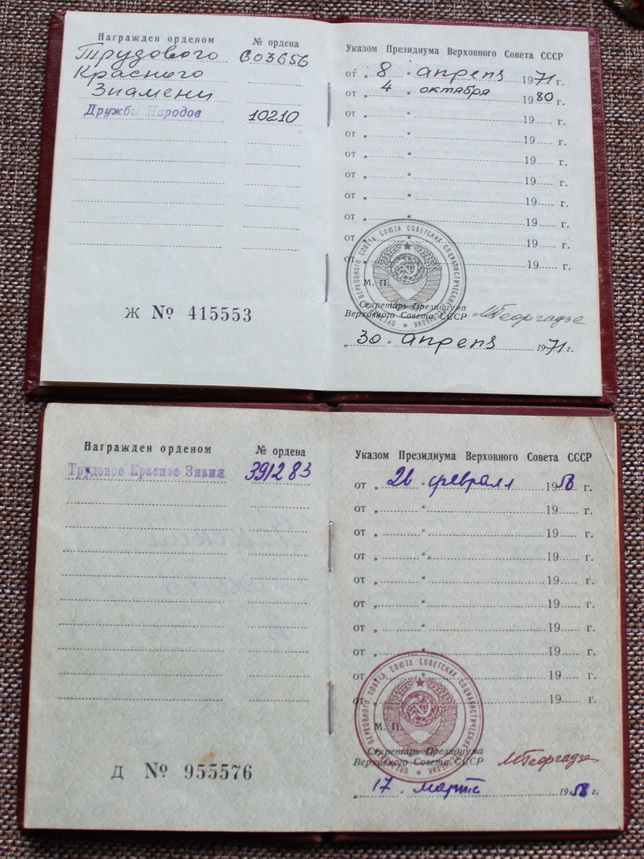 Награжден орденом № ордена
Трудового 603656
Красного
Знамени
Дружбы Народов 10210
Ж № 415553
Указом Президиума Верховного Совета СССР
от „ 8 “ апреля 1971 г.
от „ 4 “ октября 1980 г.
от „ “ 19 г.
от „ “ 19 г.
от „ “ 19 г.
от „ “ 19 г.
от „ “ 19 г.
от „ “ 19 г.
от „ “ 19 г.
от „ “ 19 г.
М. П.
Секретарь Президиума
Верховного Совета СССР МГеоргадзе
30 апреля 1971 г.
Награжден орденом № ордена
Трудовое Красное Знамя 391283
Д № 955576
Указом Президиума Верховного Совета СССР
от „ 26 “ февраля 1958 г.
от „ “ 19 г.
от „ “ 19 г.
от „ “ 19 г.
от „ “ 19 г.
от „ “ 19 г.
от „ “ 19 г.
от „ “ 19 г.
от „ “ 19 г.
от „ “ 19 г.
М. П.
Секретарь Президиума
Верховного Совета СССР МГеоргадзе
17 марта 1958 г.